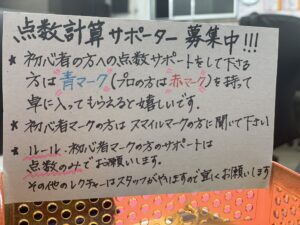 点数計算サポーター募集中!!!
★ 初心者の方への点数サポートをして下さる
方は青マーク(プロの方は赤マーク)を持って
卓に入ってもらえると嬉しいです。
★ 初心者マークの方はスマイルマークの方に聞いて下さい
★ ルール・初心者の方のサポートは
点数のみでお願いします。
その他のレクチャーはスタッフがやりますので宜しくお願いします